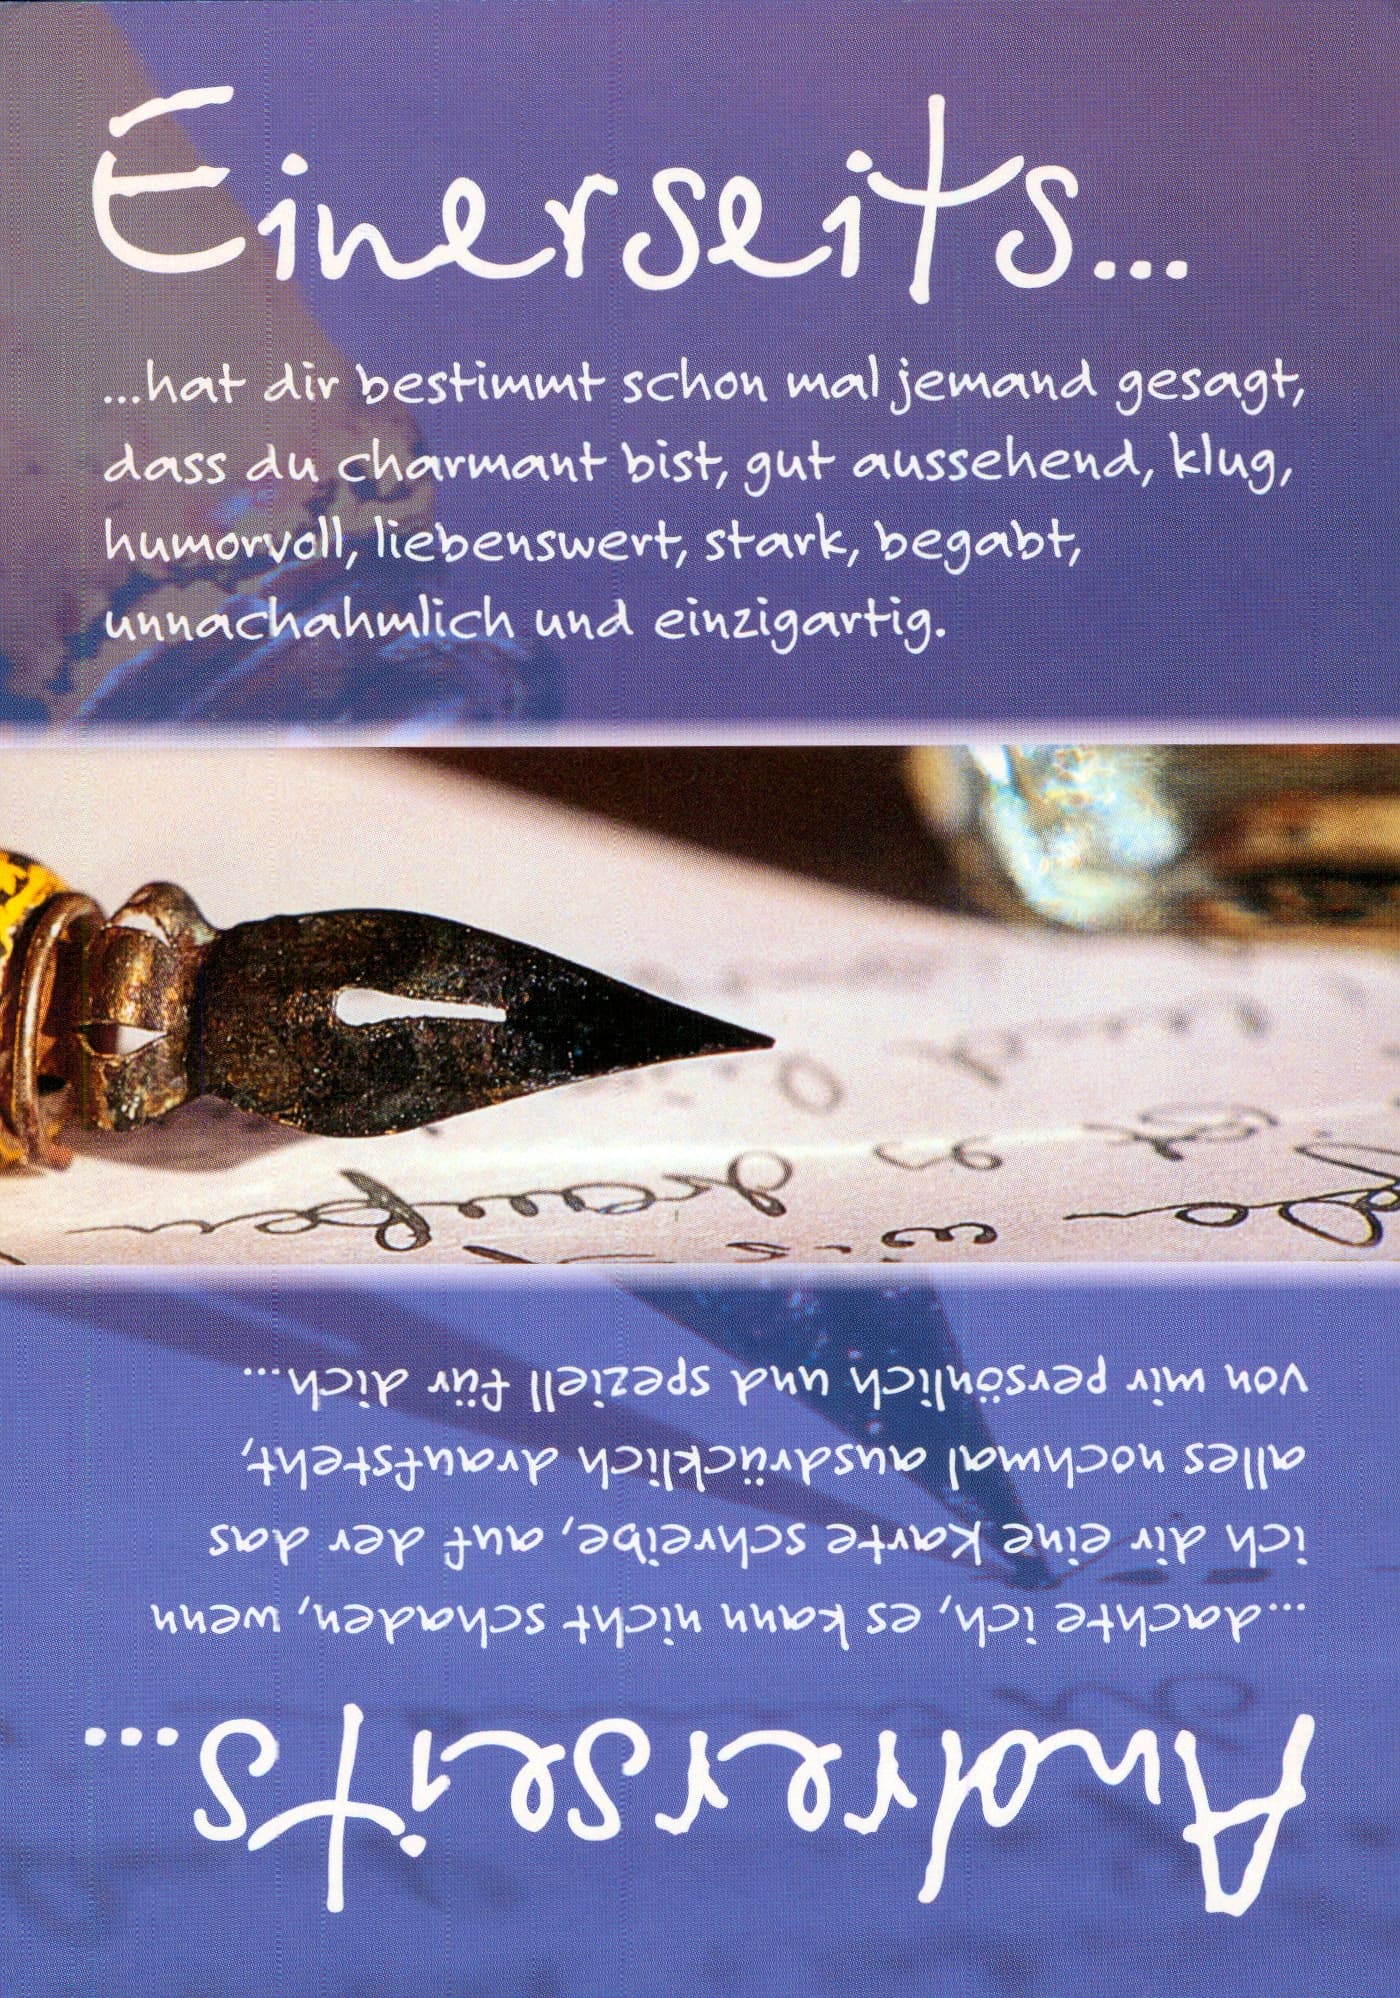 Einerseits...
...hat dir bestimmt schon mal jemand gesagt,
dass du charmant bist, gut aussehend, klug,
humorvoll, liebenswert, stark, begabt,
unnachahmlich und einzigartig.
Andrerseits...
...dachte ich, es kann nicht schaden, wenn
ich dir eine Karte schreibe, auf der das
alles nochmal ausdrücklich draufsteht,
von mir persönlich und speziell für dich...